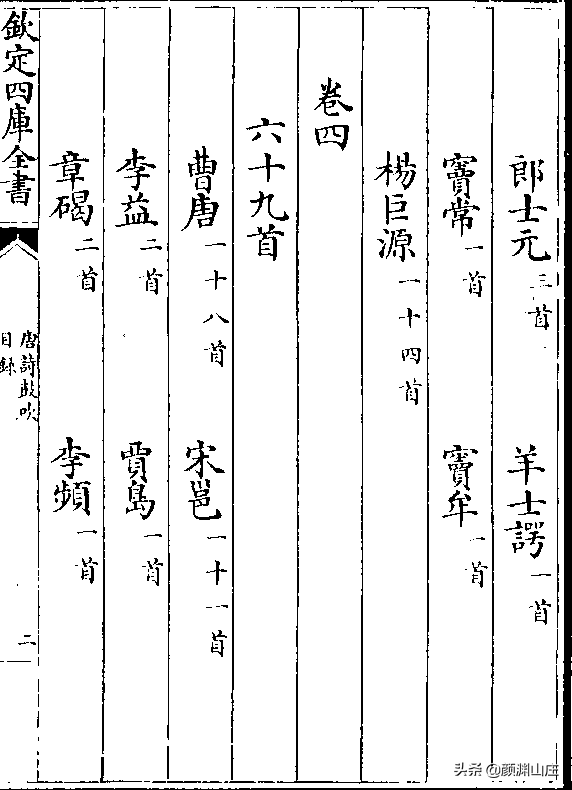 郎士元三首 羊士諤一首
竇常一首 竇牟一首
楊巨源一十四首
卷四
六十九首
曹唐一十八首 宋邕一十一首
李益二首 賈島一首
章碣二首 李頻一首
欽定四庫全書
唐詩鼓吹
目錄
二
头条 @颜渊山庄